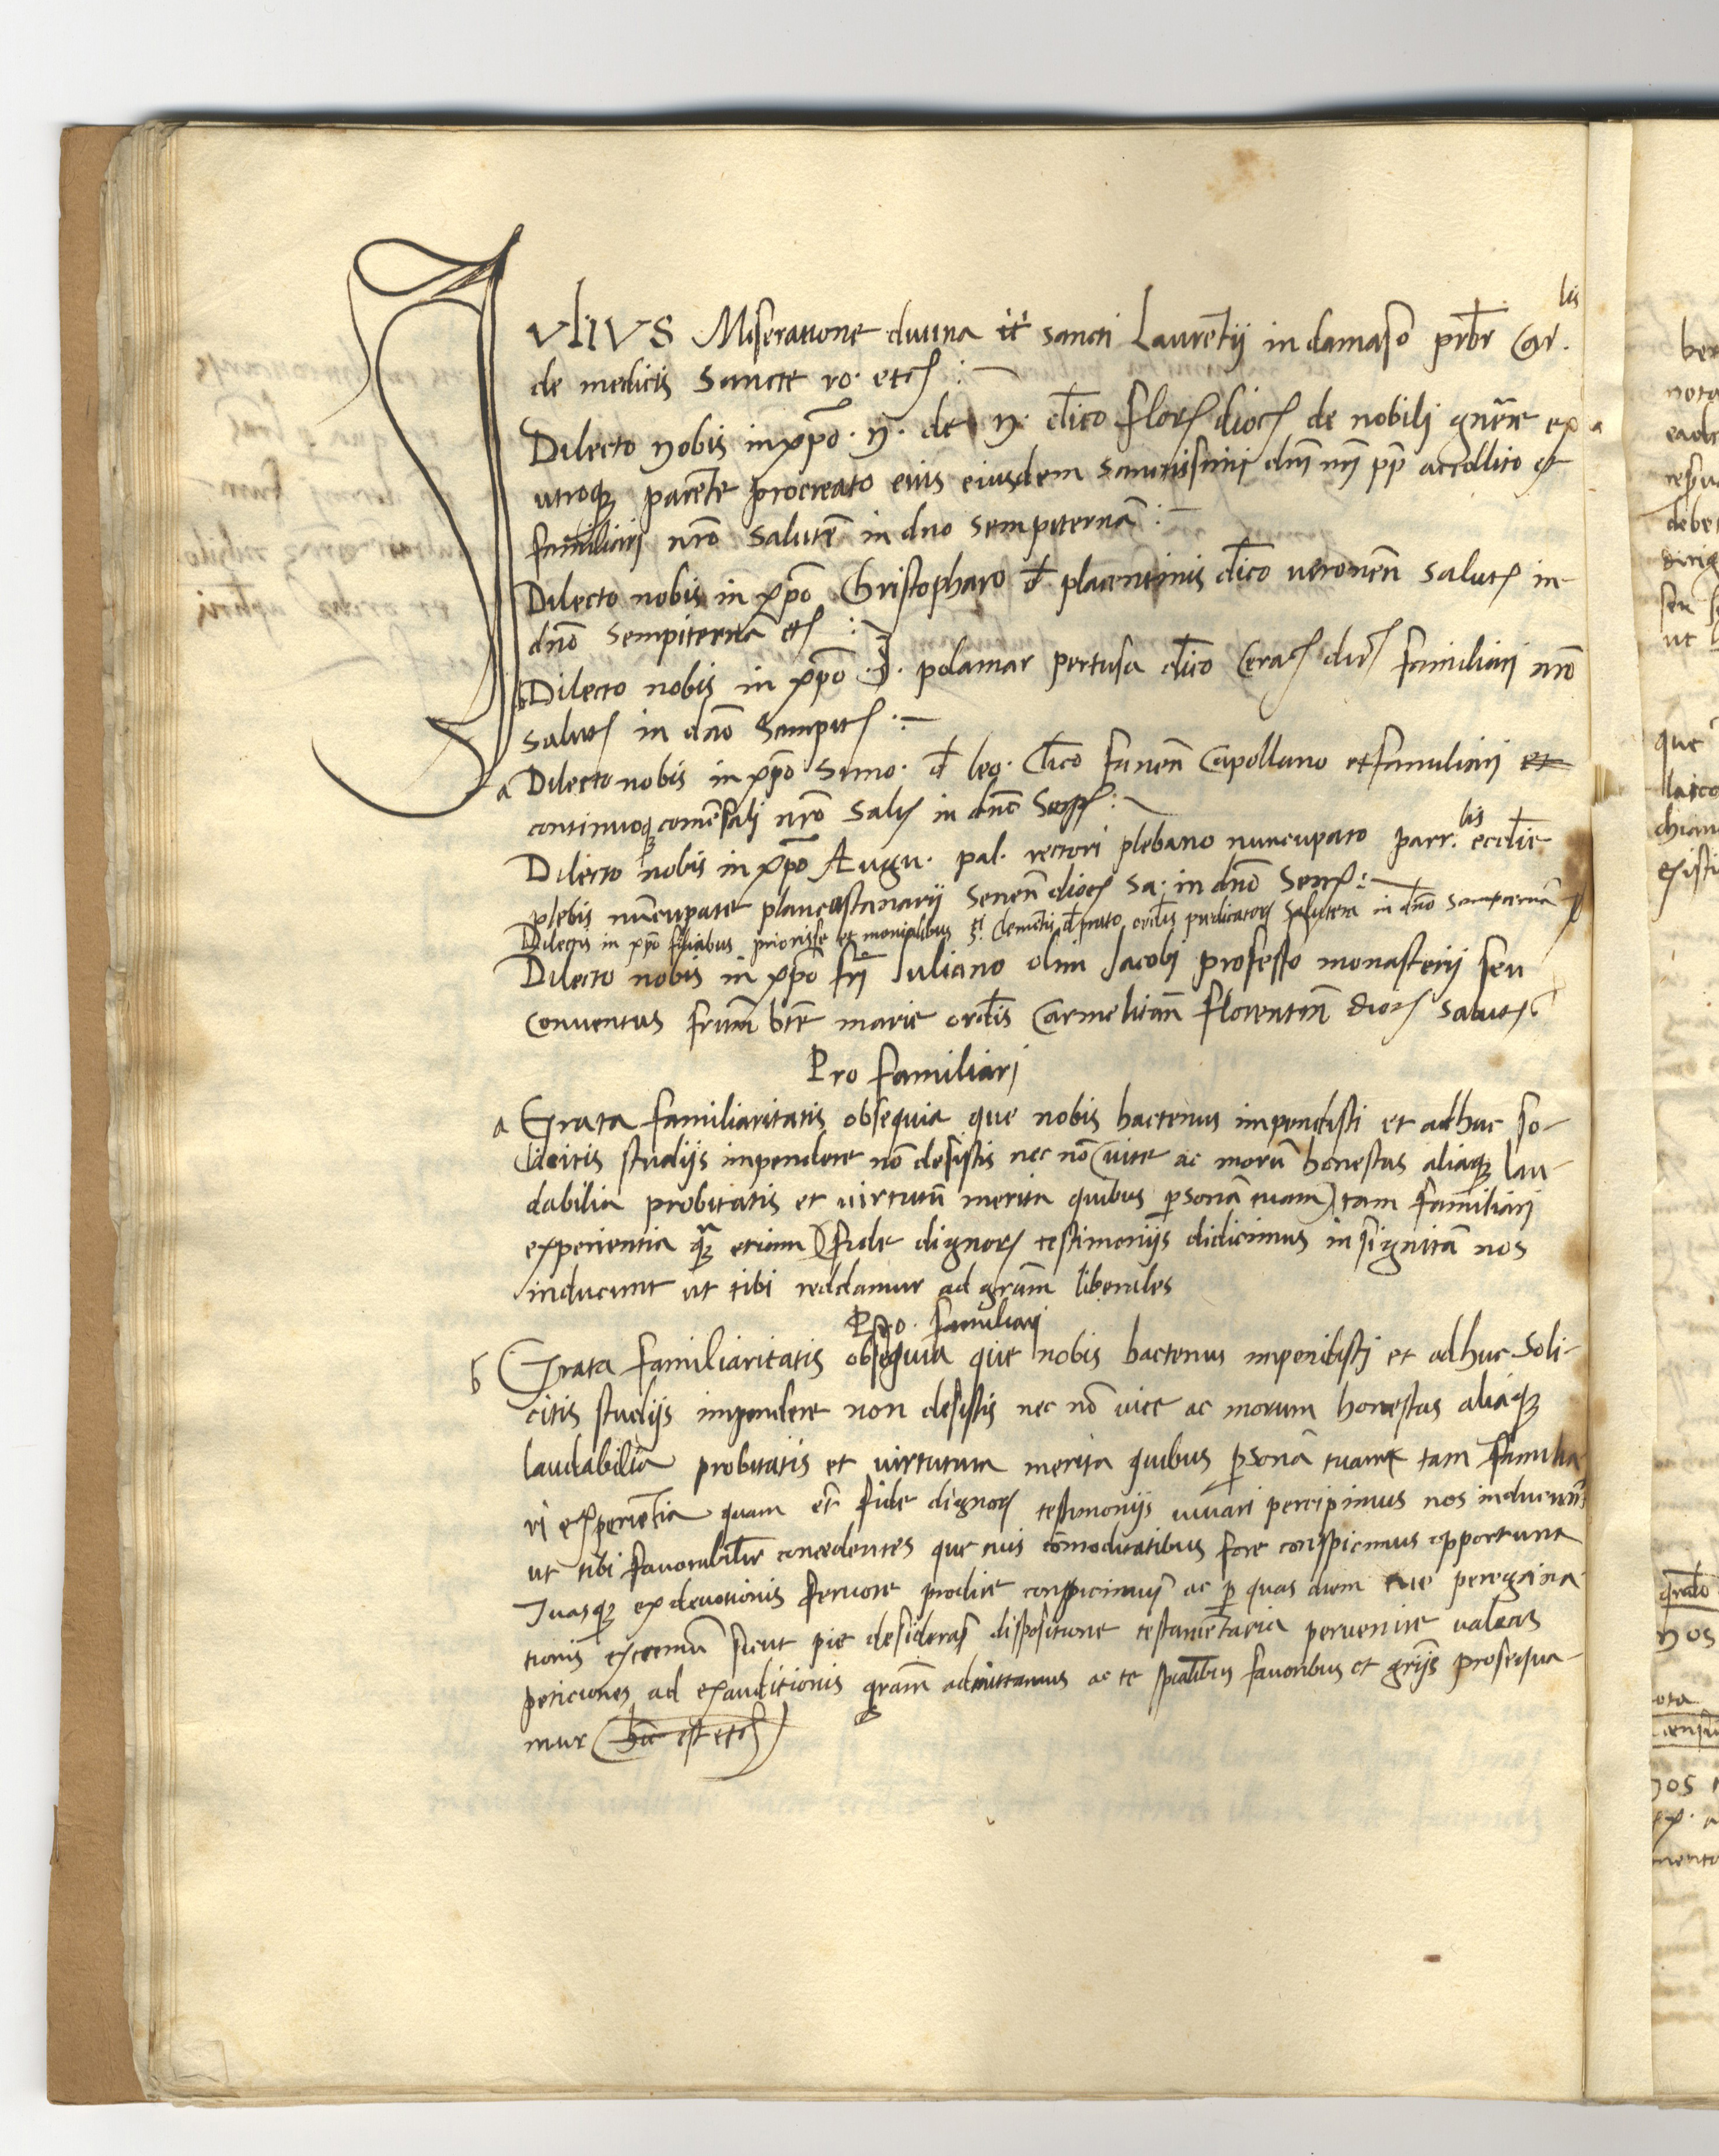 IVLIVS Miseratione diuina tt̃ sancti Laurentij in damaso pr̃br Car.lis
de medicis Sancte ro. etc̃ :
Dilecto nobis in xp̃o . n̄ . de . n̄ . cl̃ico floreñ dioc̃ de nobili gñere ex
utroq3 parente procreato eius eiusdem sanctissimi dñi nr̃i pp̃ accollito et
familiari nr̃o Salutẽ in dn̄o sempiternã :
Dilecto nobis in xp̃o Christopharo đ placentinis cl̃ico ueroneñ Salutẽ in
dño sempiternã etc̃ :
b Dilecto nobis in xp̃o . J . polamar pertusa cl̃ico Ceraẽ familiari nr̃o
Salutẽ in dño Sempitẽ :
a Dilecto nobis in xp̃o Simo. đ leo. Cl̃ico Capellano et familiari et
continuoq3 comẽsali nr̃o Salt̃ in dño Semp̃ :
Dilecto nobis in xp̃o Augu. pal. rectori plebano nuncupato parr.lis eccl̃ie
plebis nũcupate Seneñ dioc̃ Sa. in dño Semp̃ :
Dilectis in xp̃o filiabus priorisse et monialibus s̃ti Clementis đ prato ordĩs predicatoȝ Salutem in dño Sempiternã
Dilecto nobis in xp̃o fr̃i Iuliano olim Jacobj professo monasterij seu
conuentus frum̃ bt̃e marie ordĩs Carmelitañ florentiñ dioc̃ Salutẽ
Pro familiari
a Grata familiaritatis obsequia que nobis hactenus impendisti et adhuc so-
licitis studijs impendere nõ desistis nec nõ (uite ac morũ honestas aliaq3 lau-
dabilia probitatis et uirtutũ merita quibus ꝑsonã tuam) tam familiari
experientia q̃3 etiam) fide dignoȝ testimonijs didicimus insignitã nos
inducunt ut tibi reddamur ad grãm liberales
Pro . familiari
b Grata familiaritatis obsequia que nobis hactenus impendistj et adhuc soli-
citis studijs impendere non desistis nec nõ uite ac morum honestas aliaq3
laudabilia probitatis et uirtutum merita quibus ꝑsonã tuam tam familia
ri experiẽtia quam et̃ fide dignoȝ testimonijs iuuari percipimus nos inducunt
ut tibi fauorabilr̃ concedentes que tuis cõmoditatibus fore conspicimus opportuna
Tuasq3 ex deuotionis feruore prodire conspicimus ac ꝑ quas diem tue peregrina-
tionis extremũ sicut pie desideras dispositione testamẽtaria peruenire ualeas
peticiones ad exauditionis grãm admittamus ac te spiãlibus fauoribus et gr̃ijs prosequa-
mur (hĩc est etc̃)